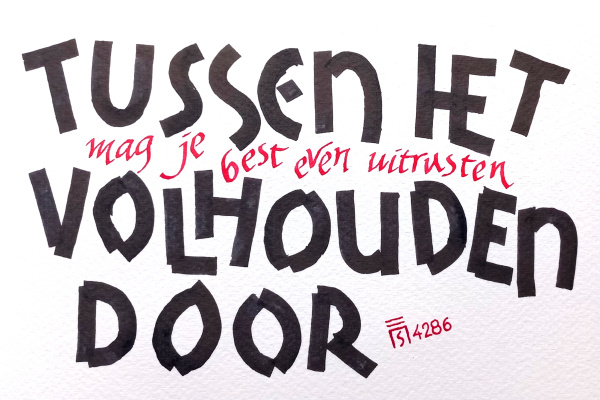 TUSSEN HET
mag je best even uitrusten
VOLHOUDEN
DOOR
4286